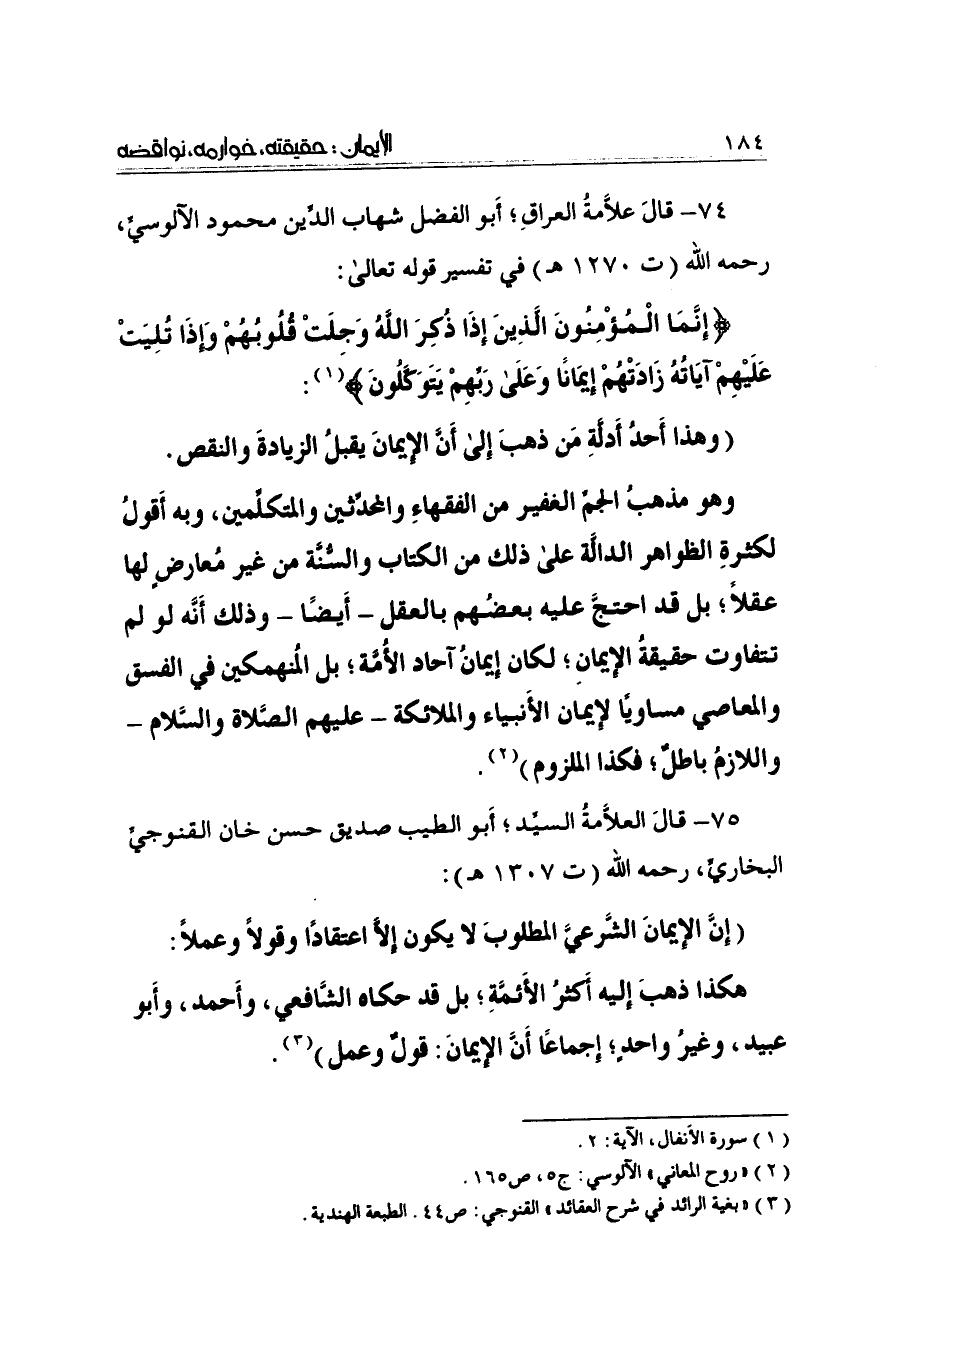 ١٨٤
الإيمان : حقيقته، خوارمه، نواقضه
٧٤– قالَ علاَّمةُ العراقِ؛ أبو الفضل شهاب الدِّين محمود الآلوسيِّ،
رحمه الله (ت ١٢٧٠ هـ) في تفسير قوله تعالىٰ:
﴿إِنَّمَا الْمُؤْمِنُونَ الَّذِينَ إِذَا ذُكِرَ اللَّهُ وَجِلَتْ قُلُوبُهُمْ وَإِذَا تُلِيَتْ
عَلَيْهِمْ آيَاتُهُ زَادَتْهُمْ إِيمَانًا وَعَلَىٰ رَبِّهِمْ يَتَوَكَّلُونَ﴾(١):
(وهذا أَحدُ أَدلَّةِ مَن ذهبَ إِلىٰ أَنَّ الإِيمانَ يقبلُ الزيادةَ والنقص.
وهو مذهبُ الجمِّ الغفير من الفقهاءِ والمحدِّثين والمتكلِّمين، وبه أَقولُ
لكثرةِ الظواهر الدالَّة علىٰ ذلك من الكتاب والسُّنَّة من غير مُعارضٍ لها
عقلاً؛ بل قد احتجَّ عليه بعضُهم بالعقل – أَيضًا – وذلك أَنَّه لو لم
تتفاوت حقيقةُ الإِيمانِ؛ لكان إِيمانُ آحاد الأُمَّة؛ بل المُنهمكين في الفسق
والمعاصي مساويًا لإِيمان الأَنبياء والملائكة – عليهم الصَّلاة والسَّلام –
واللازمُ باطلٌ؛ فكذا الملزوم)(٢).
٧٥– قالَ العلاَّمةُ السيِّد؛ أبو الطيب صديق حسن خان القنوجيِّ
البخاريِّ، رحمه الله (ت ١٣٠٧ هـ):
(إِنَّ الإِيمانَ الشَّرعيَّ المطلوبَ لا يكون إِلاَّ اعتقادًا وقولاً وعملاً:
هكذا ذهبَ إِليه أَكثرُ الأَئمَّةِ؛ بل قد حكاه الشَّافعي، وأَحمد، وأَبو
عبيد، وغيرُ واحدٍ؛ إِجماعًا أَنَّ الإِيمانَ: قولٌ وعمل)(٣).
(١) سورة الأنفال، الآية: ٢.
(٢) «روح المعاني» الآلوسي: ج٥، ص١٦٥.
(٣) «بغية الرائد في شرح العقائد» القنوجي: ص٤٤. الطبعة الهندية.